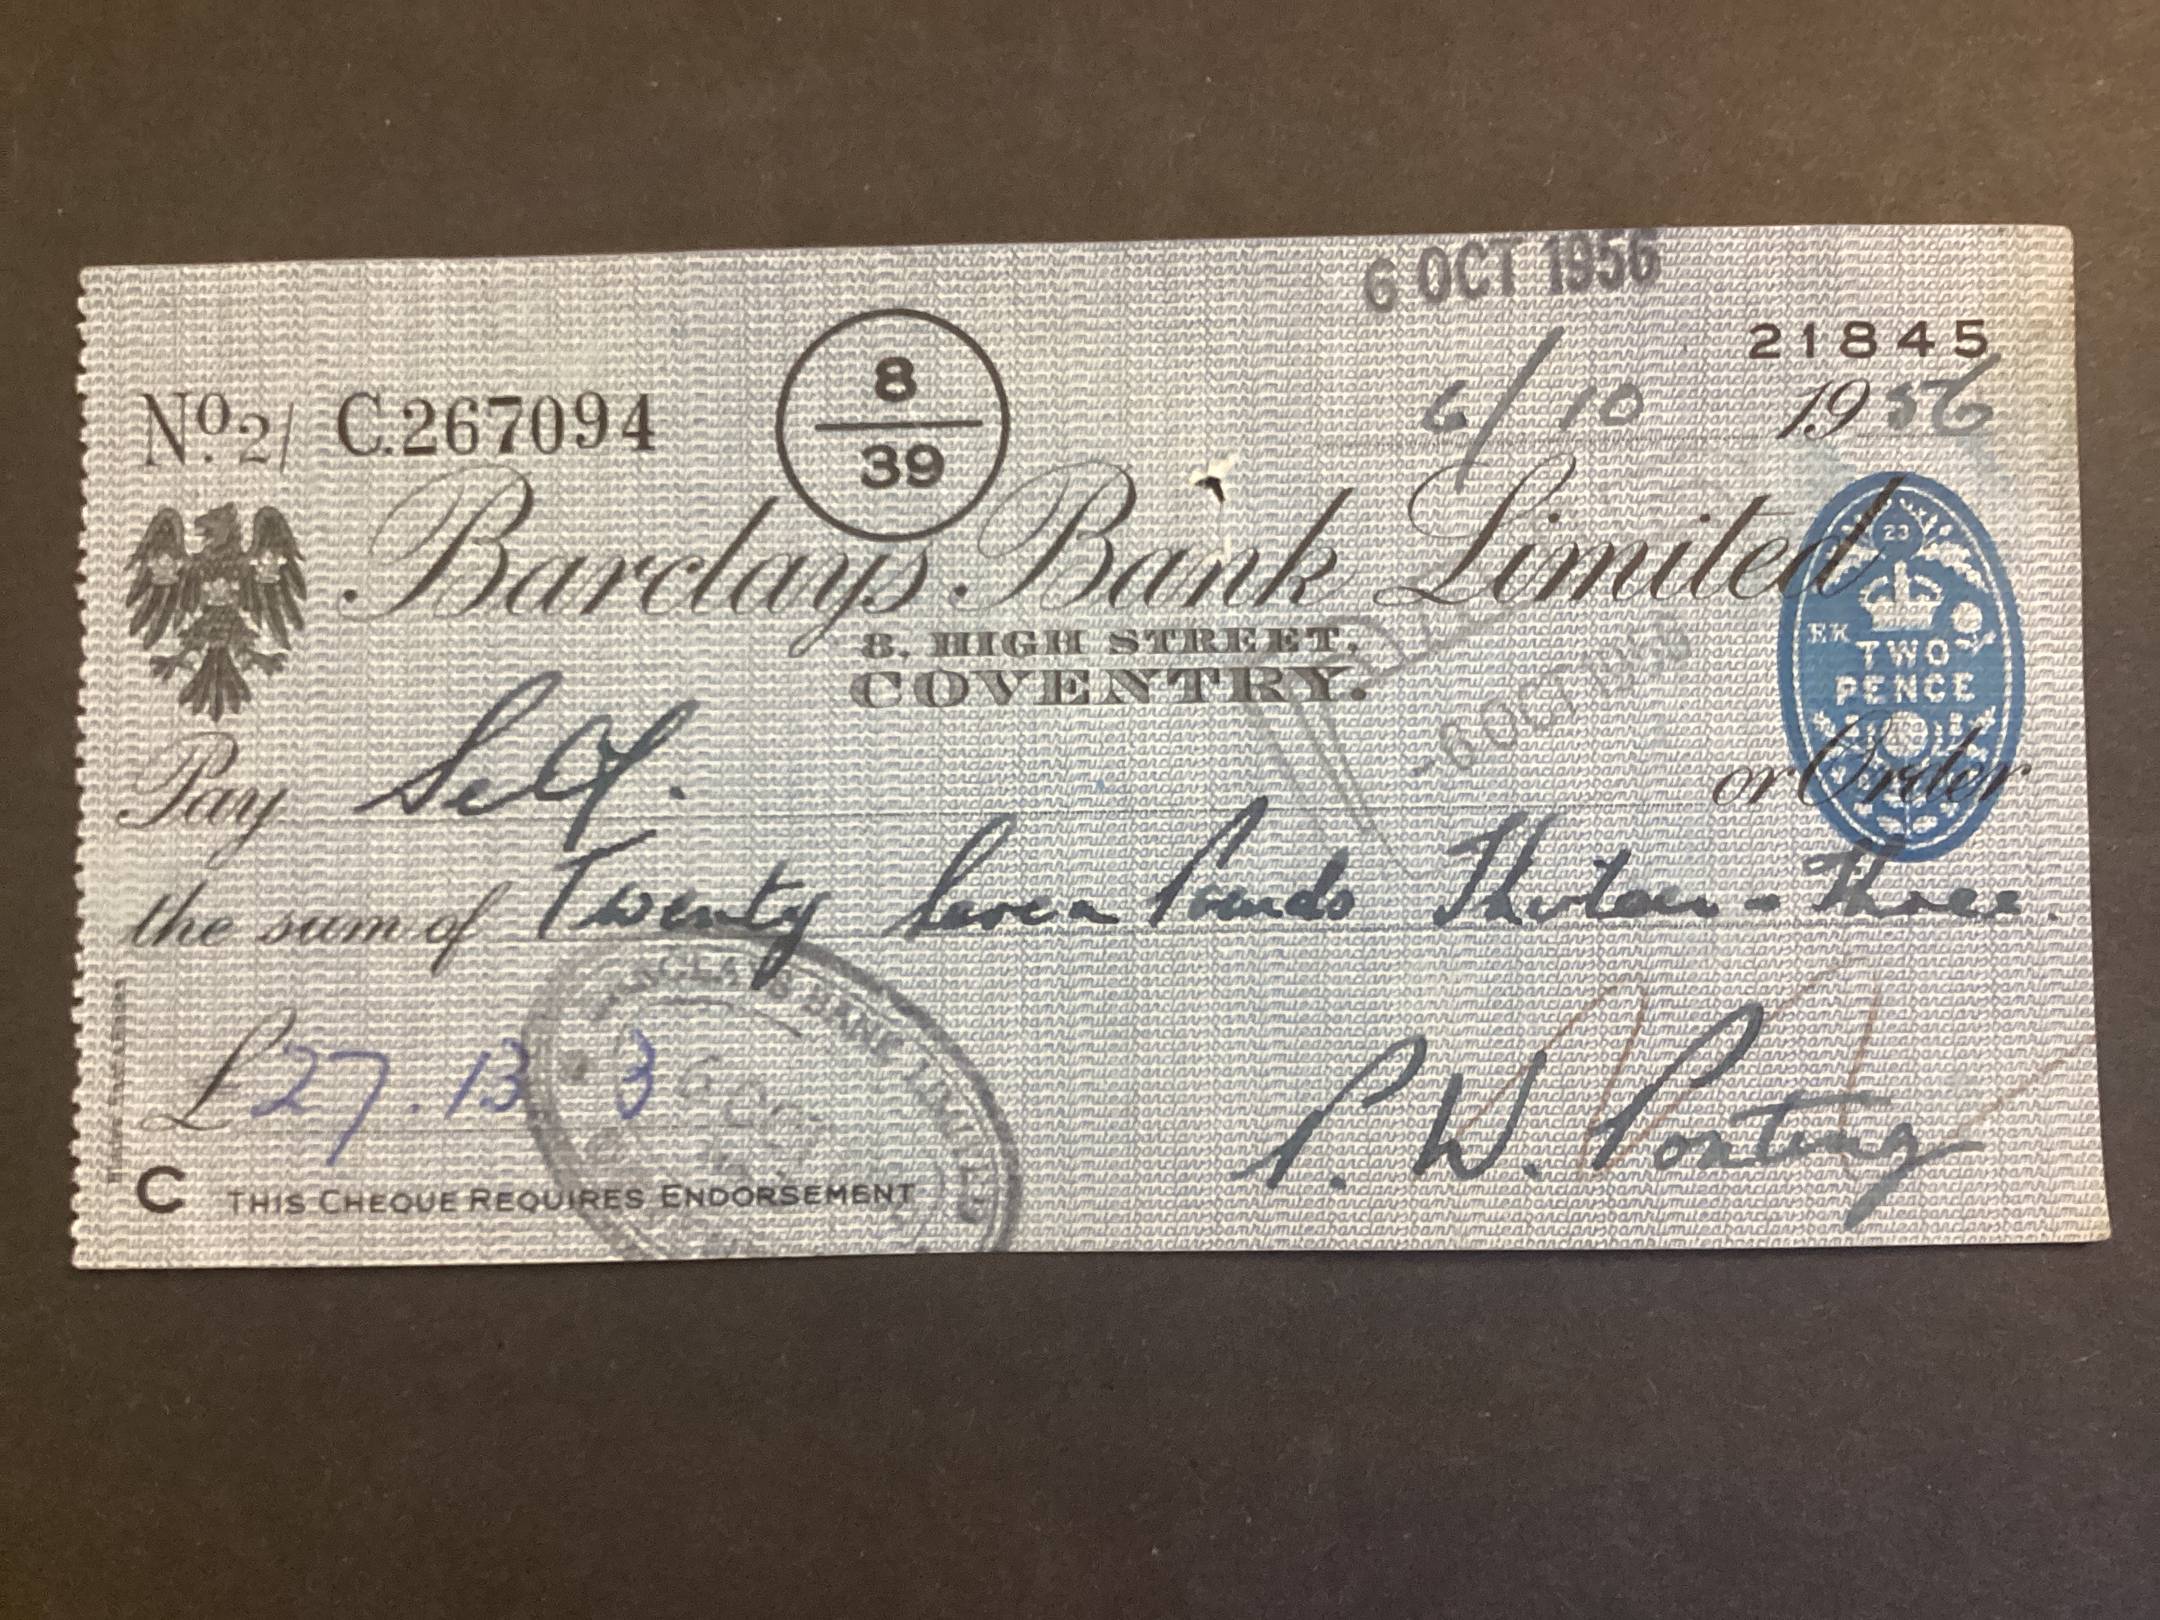 6 OCT 1956
21845
Nº. 2/ C.267094
8
39
6/10 1956
Barclays Bank Limited
8, HIGH STREET,
COVENTRY.
23
EK
TWO
PENCE
6 OCT 1956
Pay Self. or Order
the sum of Twenty Seven Pounds Thirteen - Three.
BARCLAYS BANK LIMITED
6 OCT
£27.13 3
P. W. Ponting
C THIS CHEQUE REQUIRES ENDORSEMENT